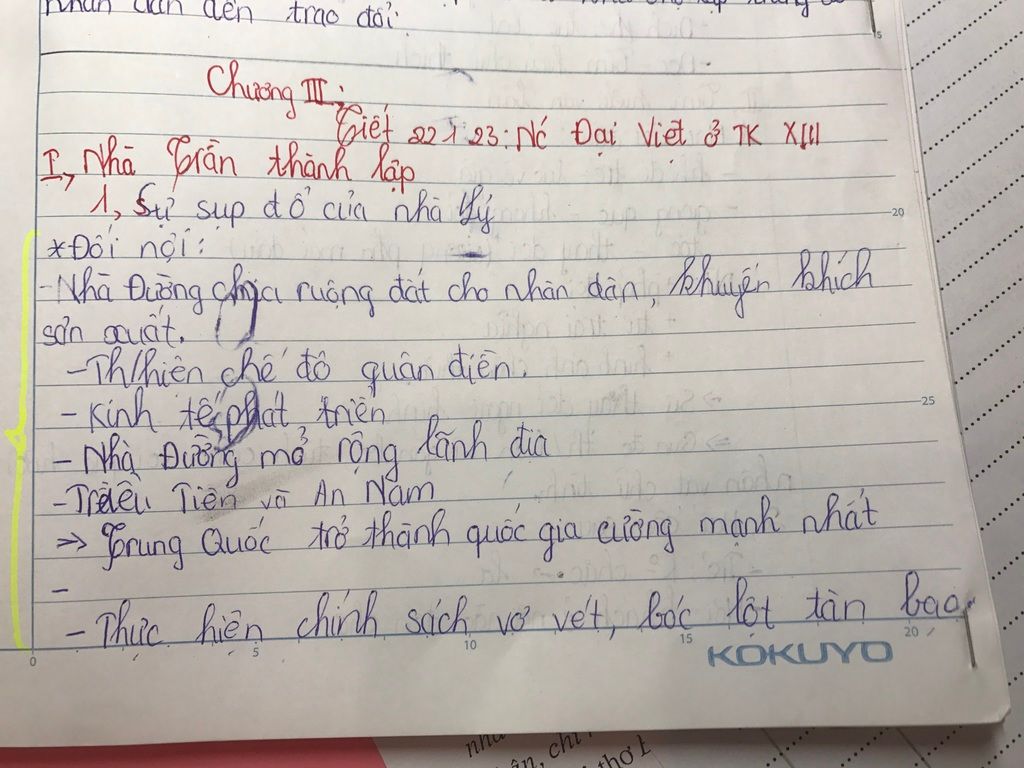 nhân dân đến trao đổi.
Chương III:
Tiết 22 + 23: Nc Đại Việt ở TK XIII
I, Nhà Trần thành lập
1, Sự sụp đổ của nhà Lý
20
*Đối nội:
-Nhà Đường chia ruộng đất cho nhân dân, khuyến khích
sản xuất.
-Th/hiện chế độ quân điền.
- Kinh tế phát triển
25
- Nhà Đường mở rộng lãnh địa
-Triều Tiên và An Nam
=> Trung Quốc trở thành quốc gia cường mạnh nhất
-
- Thực hiện chính sách vơ vét, bóc lột tàn bạo,
0 5 10 15 20
KOKUYO
ân, chi
thơ